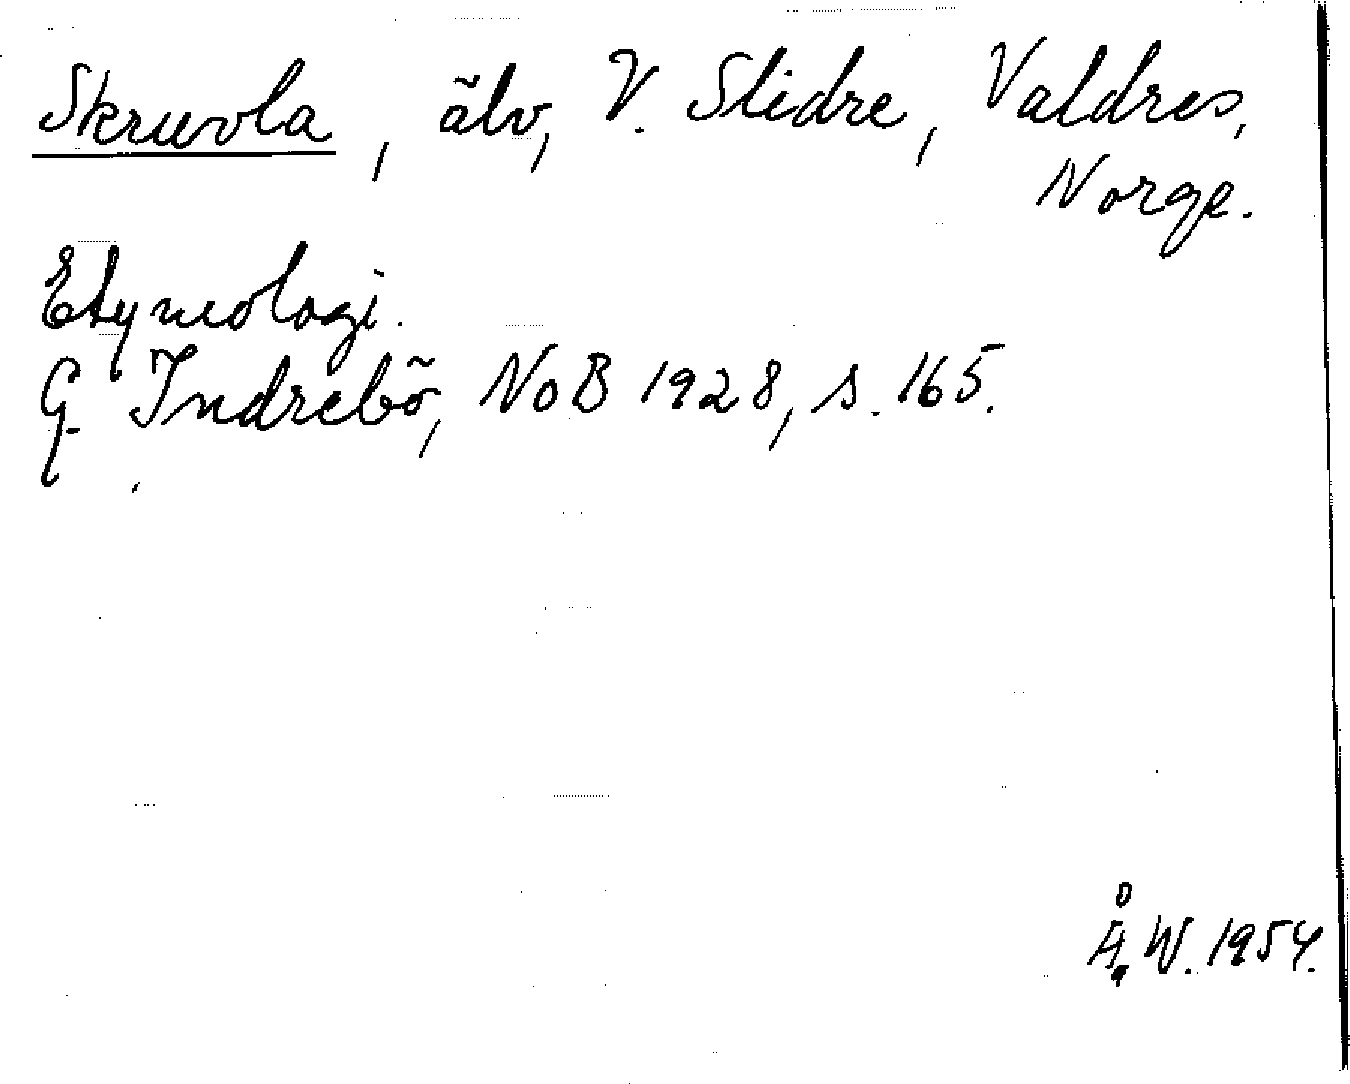 Skruvla, älv, V. Slidre, Valdres,
Norge.
Etymologi.
G. Indrebö, NoB 1928, s. 165.
Å. W. 1954.